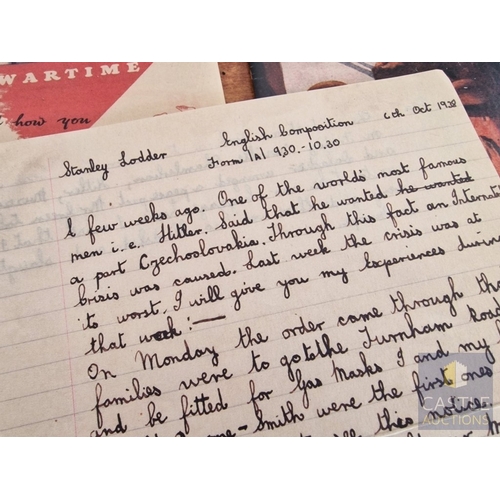 WARTIME
how you
Stanley Lodder
English Composition
6th Oct 1938
Form 1A1 9.30.-10.30
A few weeks ago. One of the world's most famous
men i.e. Hitler. Said that he wanted he wanted
a part Czechoolovakia. Through this fact an Internat
Crisis was caused. Last week the crisis was at
its worst. I will give you my Experiences during
that week:—
On Monday the order came through tha
families were to go to the Turnham Road
and be fitted for Gas Masks I and my
- Smith were the first ones
this notice.
CASTLE
AUCTIONS